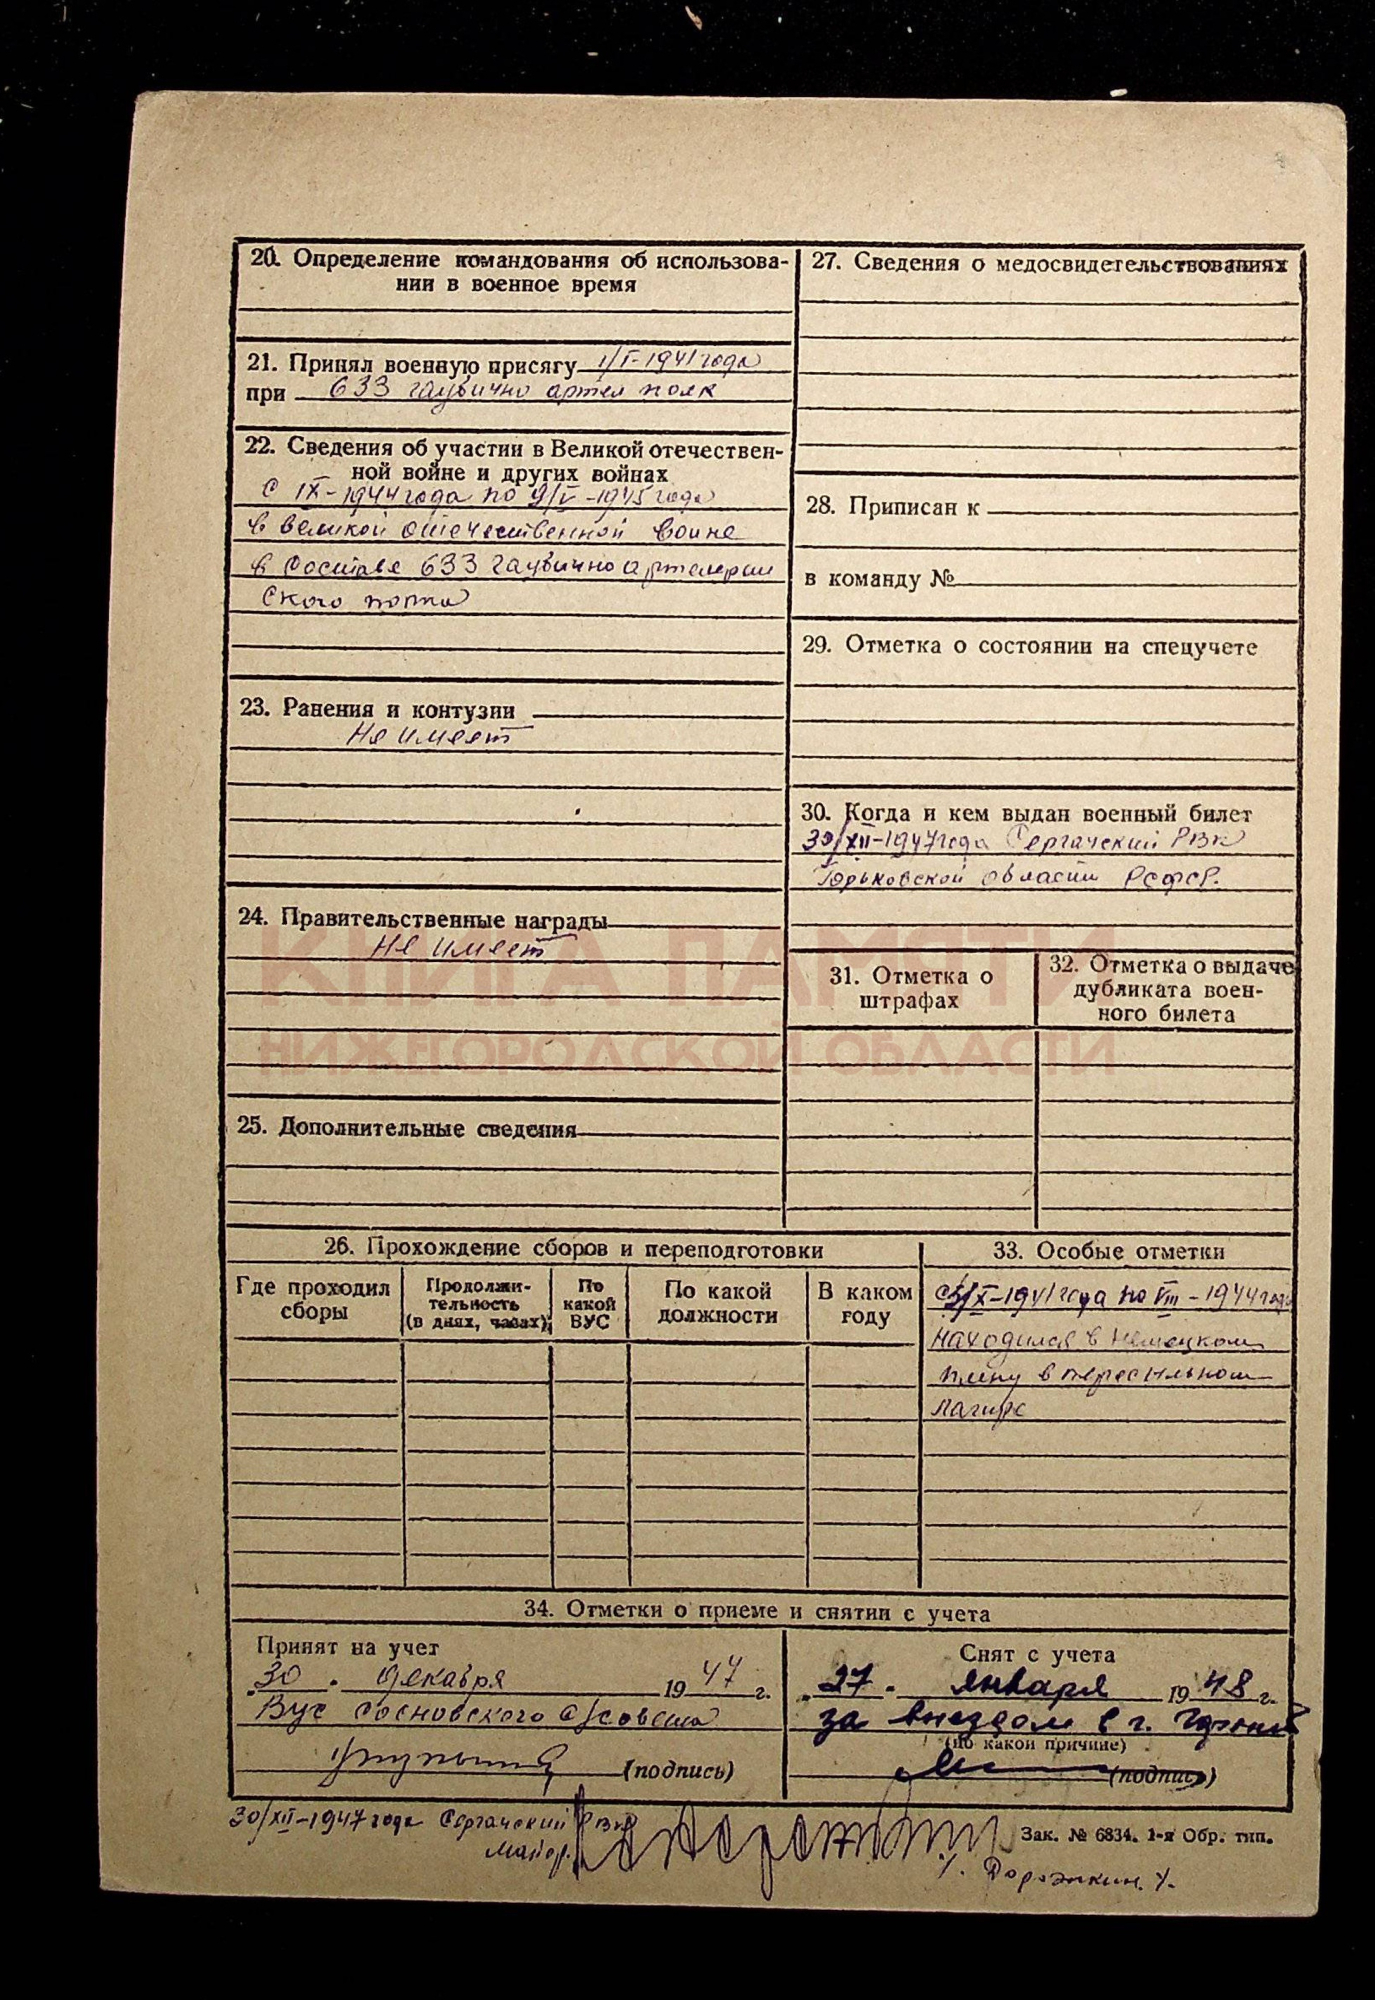 20. Определение командования об использова-
нии в военное время
21. Принял военную присягу 1/I-1941 года
при 633 гаубично артел полк
22. Сведения об участии в Великой отечествен-
ной войне и других войнах
с IX-1944 года по 9/V-1945 года
в великой отечественной воине
в составе 633 гаубично артелерии
ского полка
23. Ранения и контузии
Не имеет
24. Правительственные награды
Не имеет
25. Дополнительные сведения
27. Сведения о медосвидетельствованиях
28. Приписан к
в команду №
29. Отметка о состоянии на спецучете
30. Когда и кем выдан военный билет
30/XII-1947 года Сергачский РВК
Горьковской области РСФСР.
31. Отметка о
штрафах
32. Отметка о выдаче
дубликата воен-
ного билета
КНИГА ПАМЯТИ
НИЖЕГОРОДСКОЙ ОБЛАСТИ
26. Прохождение сборов и переподготовки
Где проходил
сборы
Продолжи-
тельность
(в днях, часах)
По
какой
ВУС
По какой
должности
В каком
году
33. Особые отметки
X-1941 года по VIII-1944 года
находился в немецком
плену в пересильном
лагире
34. Отметки о приеме и снятии с учета
Принят на учет
30 декабря 1947 г.
Вус Сосновского с/совета
(подпись)
Снят с учета
27 января 1948 г.
за выездом в г.
(по какой причине)
(подпись)
30/XII-1947 года Сергачский РВК
майор.
Зак. № 6834. 1-я Обр. тип.
Дорожкин.